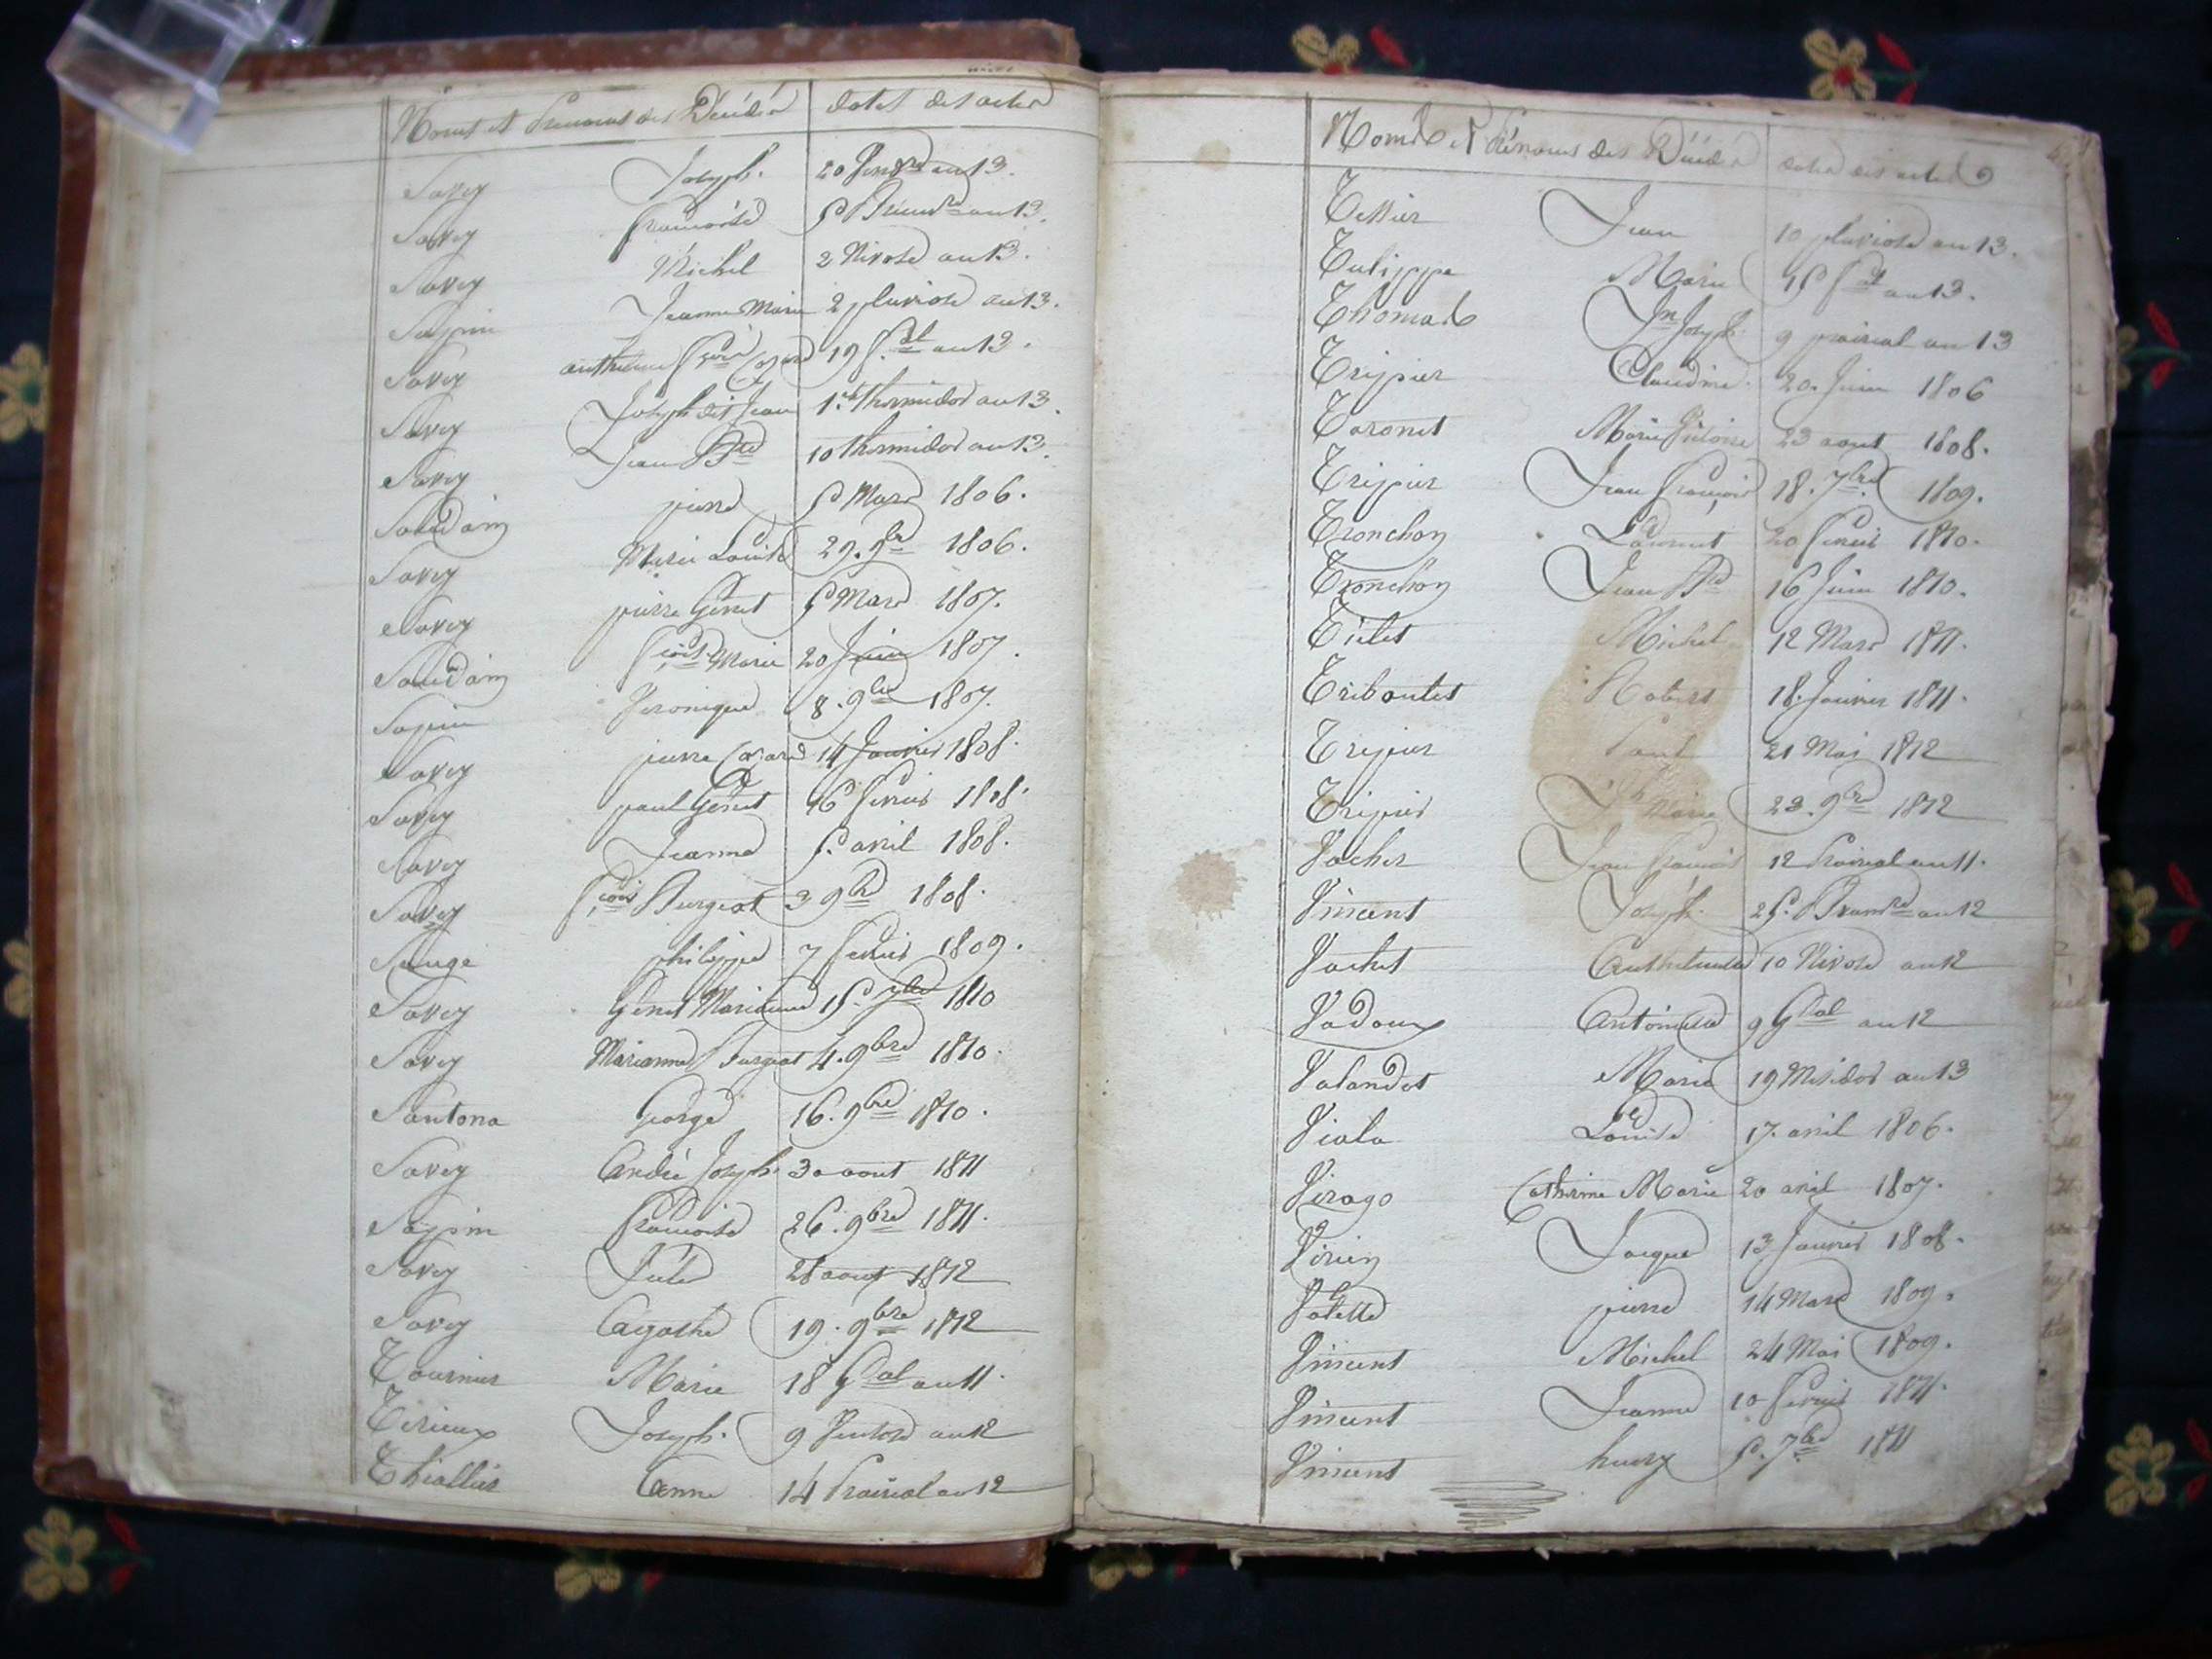 Noms et Prenoms des Décédés dates des actes
Savey Joseph 20 Vend.re an 13.
Savey francoise 5 Brum.re an 13.
Savey Michel 2 Nivose an 13.
Sapin Jeanne Marie 2 pluviose an 13.
Savey anthelme 19 f.al an 13.
Savey Joseph dit Jean 1.er thermidor an 13.
Savey Jean B.te 10 thermidor an 13.
Soudan pierre 5 Mars 1806.
Savey Marie Louise 29. 9bre 1806.
Savey pierre Genet 5 Mars 1807.
Soudan f.çois Marie 20 Juin 1807.
Sapin Veronique 8. 9bre 1807.
Savey pierre 14 Janvier 1808.
Savey paul Genet 16 fevrier 1808.
Savey Jeanne 5. avril 1808.
Savey f.çois Burgeat 3 9bre 1808.
Sauge philippe 7 fevrier 1809.
Savey Genet Marianne 15. 1810
Savey Marianne Burgeat 4. 9bre 1810.
Santona George 16. 9bre 1810.
Savey André Joseph 30 aout 1811
Sapin francoise 26. 9bre 1811.
Savey Julie 28 aout 1812
Savey Agathe 19. 9bre 1812
Tournier Marie 18 G.al an 11.
Terieux Joseph 9 Ventose an 12
Thiollier Anne 14 Prairial an 12
Noms et Prénoms des Décédés dates des actes
Tessier Jean 10 pluviose an 13.
Tulippe Marie 15 f.al an 13.
Thomas J.n Joseph 9 prairial an 13
Tripier Claudine 20. Juin 1806
Toronet Marie Victoire 23 aout 1808.
Tripier Jean françois 18. 7bre 1809.
Tronchon Laurent 20 fevrier 1810.
Tronchon Jean B.te 16 Juin 1810.
Michel 12 Mars 1811.
Triboulet Robert 18. Janvier 1811.
Tripier Paul 21 Mai 1812
Tripier Marie 23. 9bre 1812
Vacher Jean françois 12 Prairial an 11.
Vincent Joseph 25. Brum.re an 12
Vachet Anthelmette 10 Nivose an 12
Vadoux Antoinette 9 G.al an 12
Valandot Marie 19 Mesidor an 13
Viala Louise 17. avril 1806.
Virago Catherine Marie 20 avril 1807.
Virien Jacque 13 Janvier 1808.
Valette pierre 14 Mars 1809.
Vincent Michel 24 Mai 1809.
Vincent Jeanne 10 fevrier 1811.
Vincent henry 5. 7bre 1811